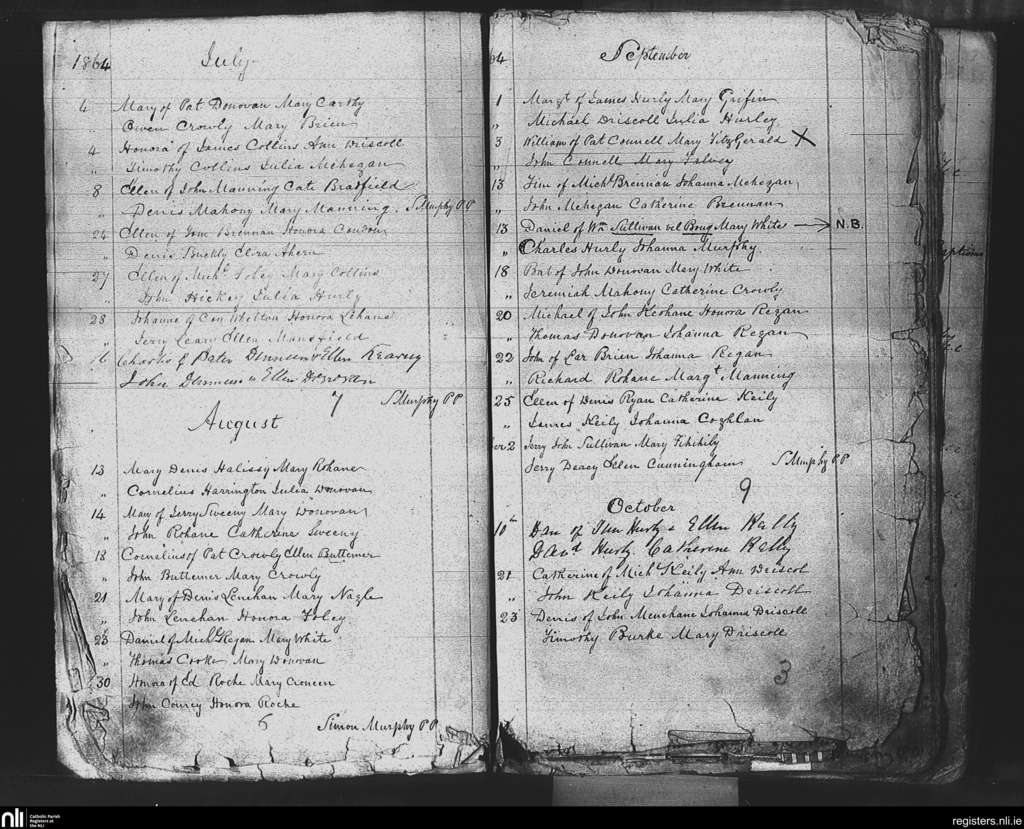 1864 July
4 Mary of Pat Donovan Mary Carthy
" Owen Crowly Mary Brien
4 Honora of James Collins Ann Driscoll
" Timothy Collins Julia Mehegan
8 Ellen of John Manning Cate Bradfield
" Denis Mahony Mary Manning. S. Murphy PP
24 Ellen of Tom Brennan Honora Condon
" Denis Buckly Ahern
27 Ellen of Michl. Foley Mary Collins
" John Hickey Julia Hurly
28 Johanna of Con Whelton Honora Lehane
" Jerry Leary Ellen Mansfield
16 Charles of Peter Ellen Kearney
John Ellen
7 S. Murphy PP
August
13 Mary Denis Halissy Mary Rohane
" Cornelius Harrington Julia Donovan
14 Mary of Jerry Sweeny Mary Donovan
" John Rohane Catherine Sweeny
18 Cornelius of Pat Crowly Ellen Buttemer
" John Buttemer Mary Crowly
21 Mary of Denis Lenehan Mary Nagle
" John Lenehan Honora Foley
Daniel of Michl. Regan Mary White
" Thomas Cooke Mary Donovan
30 Honora of Ed Roche Mary Croneen
John Courcy Honora Roche
6 Simon Murphy PP
64 September
1 Margt. of James Hurly Mary Grifin
" Michael Driscoll Julia Hurley
3 William of Pat Connell Mary FitzGerald X
" John Connell Mary
13 Tim of Michl. Brennan Johanna Mehegan
" John Mehegan Catherine Brennan
13 Daniel of Wm Sullivan vel Boug Mary White → N.B.
" Charles Hurly Johanna Murphy
18 Bat of John Donovan Mary White
" Jeremiah Mahony Catherine Crowly
20 Michael of John Keohane Honora Regan
" Thomas Donovan Johanna Regan
22 John of Lar Brien Johanna Regan
" Richard Rohane Margt Manning
25 Ellen of Denis Ryan Catherine Keily
" James Keily Johanna Coghlan
2 Jerry John Sullivan Mary
Jerry Deacy Ellen Cunningham S Murphy PP
9
October
10th Dan of Hurly & Ellen Kelly
David Hurly Catherine Kelly
21 Catherine of Michl Keily Ann Driscol
" John Keily Johanna Driscoll
23 Denis of John Johanna Driscoll
Timothy Burke Mary Driscoll
3
nli Catholic Parish Registers at the NLI
registers.nli.ie